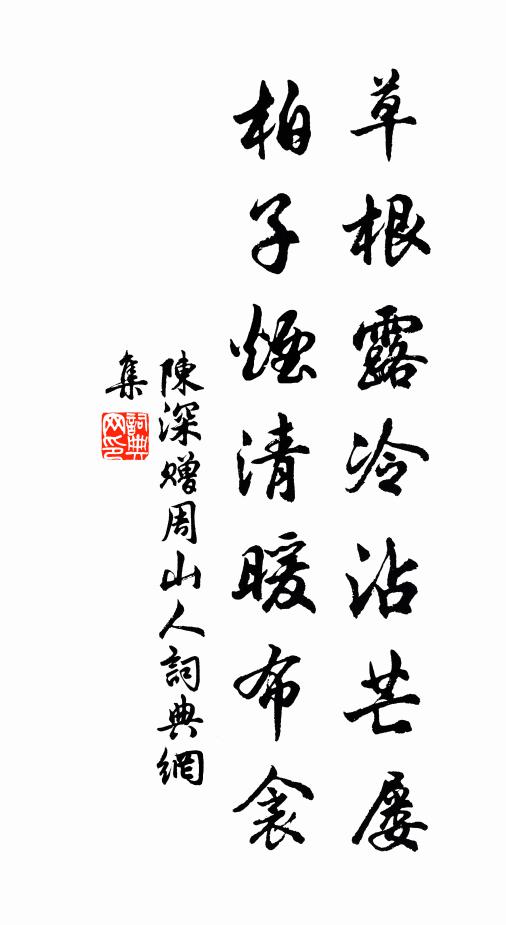 草根露冷沾芒屦
柏子煙清暖布衾
陳深贈周山人詞典網
集
詞典网印